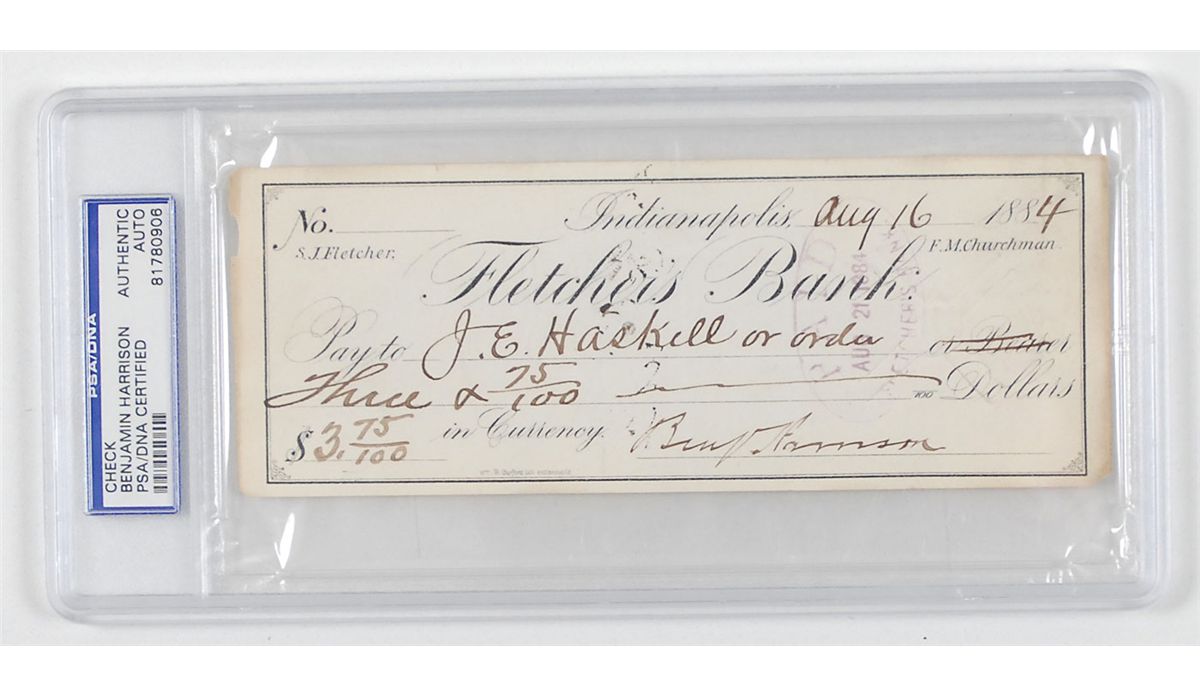 PSA/DNA
CHECK
BENJAMIN HARRISON
PSA/DNA CERTIFIED
AUTHENTIC
AUTO
81780906
No.
Indianapolis, Aug 16 1884
S. J. Fletcher.
F. M. Churchman.
Fletcher's Bank.
Pay to J. E. Haskell or order or Bearer
Three & 75/100 /100 Dollars
$3.75/100 in Currency. Benj Harrison
PAID
AUG 21 1884
FLETCHER'S